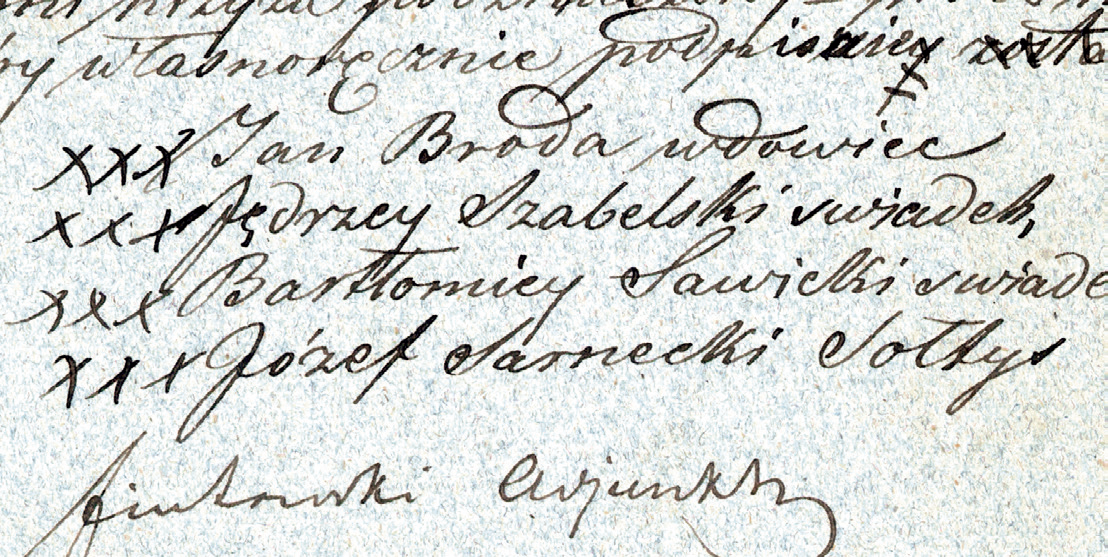 własnoręcznie podpisany został
xxx Jan Broda wdowiec
xxx Jędrzey Szabelski swiadek,
xxx Bartłomiey Sawicki swiade
xxx Józef Sarnecki Sołtys
Adjunkt